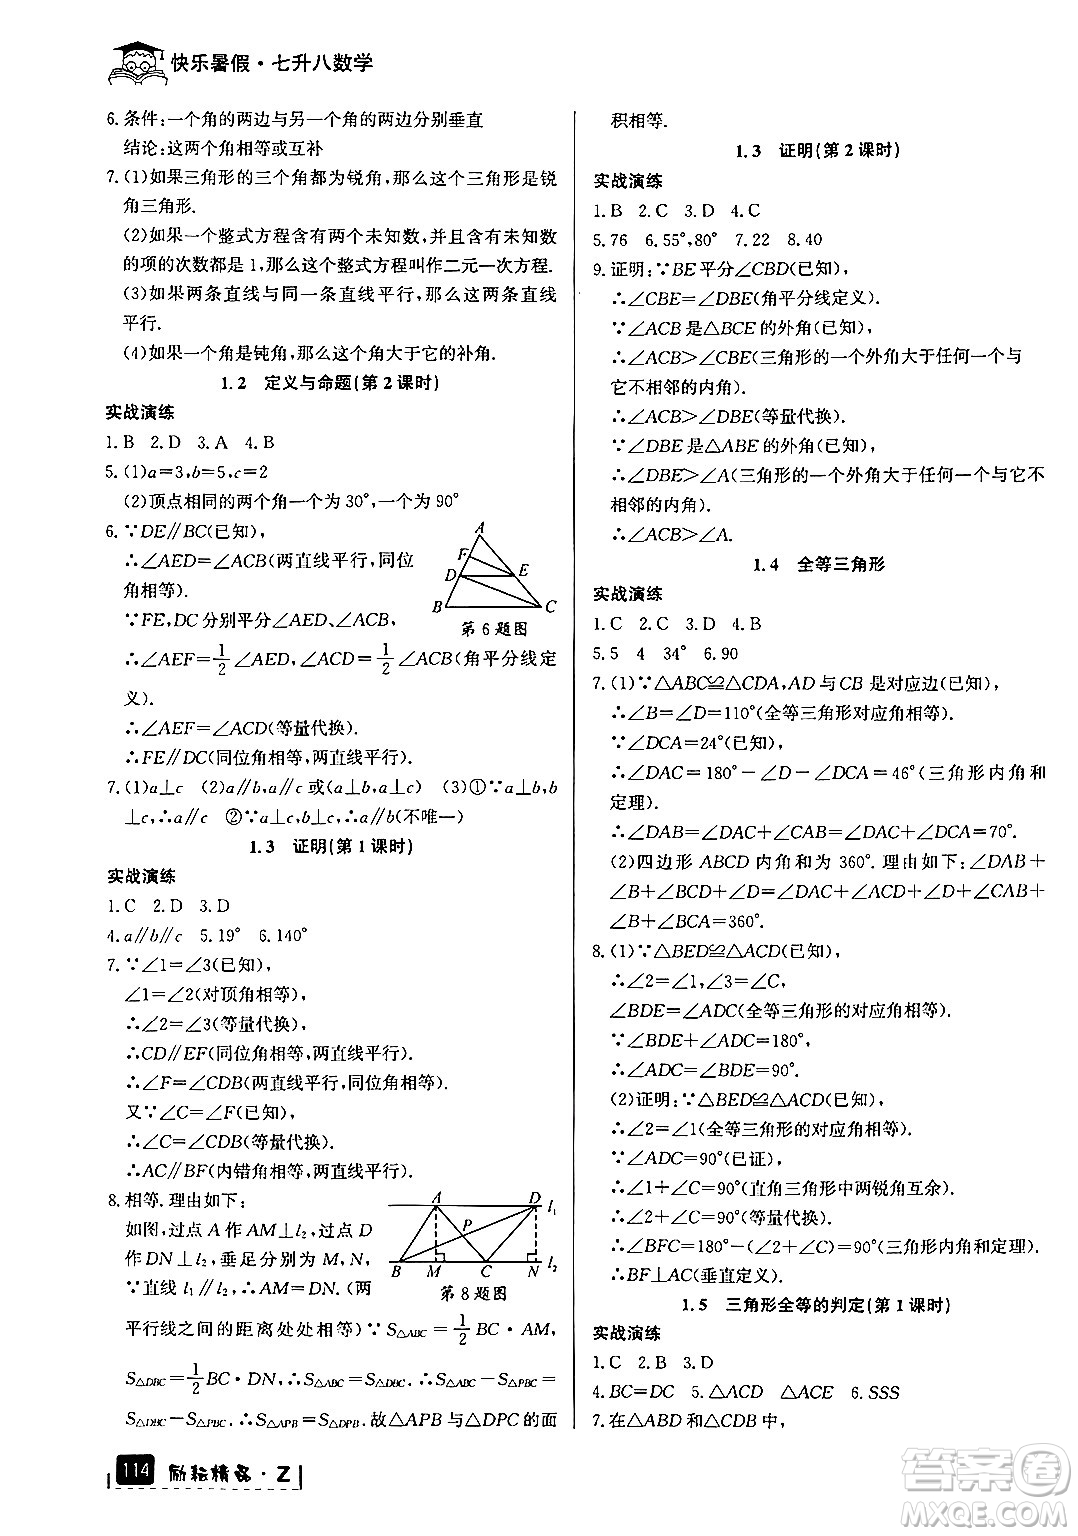 快乐暑假·七升八数学
6.条件:一个角的两边与另一个角的两边分别垂直
结论:这两个角相等或互补
7.(1)如果三角形的三个角都为锐角,那么这个三角形是锐
角三角形.
(2)如果一个整式方程含有两个未知数,并且所含未知数
的项的次数都是1,那么这个整式方程叫作二元一次方程.
(3)如果两条直线与同一条直线平行,那么这两条直线
平行.
(4)如果一个角是钝角,那么这个角大于它的补角.
1.2 定义与命题(第2课时)
实战演练
1.B 2.D 3.A 4.B
5.(1)a=3,b=5,c=2
(2)顶点相同的两个角一个为30°,一个为60°
6.∵DE∥BC(已知),
∴∠AED=∠ACB(两直线平行,同位
角相等).
∵FE,DC分别平分∠AED,∠ACB,
∴∠AEF=1/2∠AED,∠ACD=1/2∠ACB(角平分线定
义).
∴∠AEF=∠ACD(等量代换).
∴FE∥DC(同位角相等,两直线平行).
A
F
D E
B C
第6题图
7.(1)a⊥c (2)a∥b,a∥c或(a⊥b,a⊥c) (3)①∵a⊥b,
b⊥c,∴a∥c ②∵a⊥c,b⊥c,∴a∥b(不唯一)
1.3 证明(第1课时)
实战演练
1.C 2.D 3.D
4.a∥b∥c 5.19° 6.140°
7.∵∠1=∠3(已知),
∠1=∠2(对顶角相等),
∴∠2=∠3(等量代换).
∴CD∥EF(同位角相等,两直线平行).
∴∠F=∠CDB(两直线平行,同位角相等).
又∵∠C=∠F(已知),
∴∠C=∠CDB(等量代换).
∴AC∥BF(内错角相等,两直线平行).
8.相等.理由如下:
如图,过点A作AM⊥l₂,过点D
作DN⊥l₂,垂足分别为M,N.
∵直线l₁∥l₂,∴AM=DN.(两
平行线之间的距离处处相等)∵S△ABC=1/2BC·AM,
S△DBC=1/2BC·DN,∴S△ABC=S△DBC.∴S△ABC-S△PBC=
S△DBC-S△PBC.∴S△APB=S△DPB.故△APB与△DPC的面
A D l₁
P
B M C N l₂
第8题图
114 励耘精品·Z
积相等.
1.3 证明(第2课时)
实战演练
1.B 2.C 3.D 4.C
5.76 6.55°,80° 7.22 8.40
9.证明:∵BE平分∠CBD(已知),
∴∠CBE=∠DBE(角平分线定义).
∵∠ACB是△BCE的外角(已知),
∴∠ACB>∠CBE(三角形的一个外角大于任何一个与
它不相邻的内角).
∴∠ACB>∠DBE(等量代换).
∵∠DBE是△ABE的外角(已知),
∴∠DBE>∠A(三角形的一个外角大于任何一个与它不
相邻的内角).
∴∠ACB>∠A.
1.4 全等三角形
实战演练
1.C 2.C 3.D 4.B
5.5 4 34° 6.90
7.(1)∵△ABC≌△CDA,AD与CB是对应边(已知),
∴∠B=∠D=110°(全等三角形对应角相等).
∵∠DCA=24°(已知),
∴∠DAC=180°-∠D-∠DCA=46°(三角形内角和
定理).
∴∠DAB=∠DAC+∠CAB=∠DAC+∠DCA=70°.
(2)四边形ABCD内角和为360°.理由如下:∠DAB+
∠B+∠BCD+∠D=∠DAC+∠DCA+∠D+∠CAB+
∠B+∠BCA=360°.
8.(1)∵△BED≌△ACD(已知),
∴∠2=∠1,∠3=∠C,
∠BDE=∠ADC(全等三角形的对应角相等).
∵∠BDE+∠ADC=180°,
∴∠ADC=∠BDE=90°.
(2)证明:∵△BED≌△ACD(已知),
∴∠2=∠1(全等三角形的对应角相等).
∵∠ADC=90°(已证),
∴∠1+∠C=90°(直角三角形中两锐角互余).
∴∠2+∠C=90°(等量代换).
∴∠BFC=180°-90°=90°(三角形内角和定理).
∴BF⊥AC(垂直定义).
1.5 三角形全等的判定(第1课时)
实战演练
1.C 2.B 3.D
4.BC=DC 5.△ACD △ACE 6.SSS
7.在△ABD和△CDB中,
答案圈
MXQE.COM